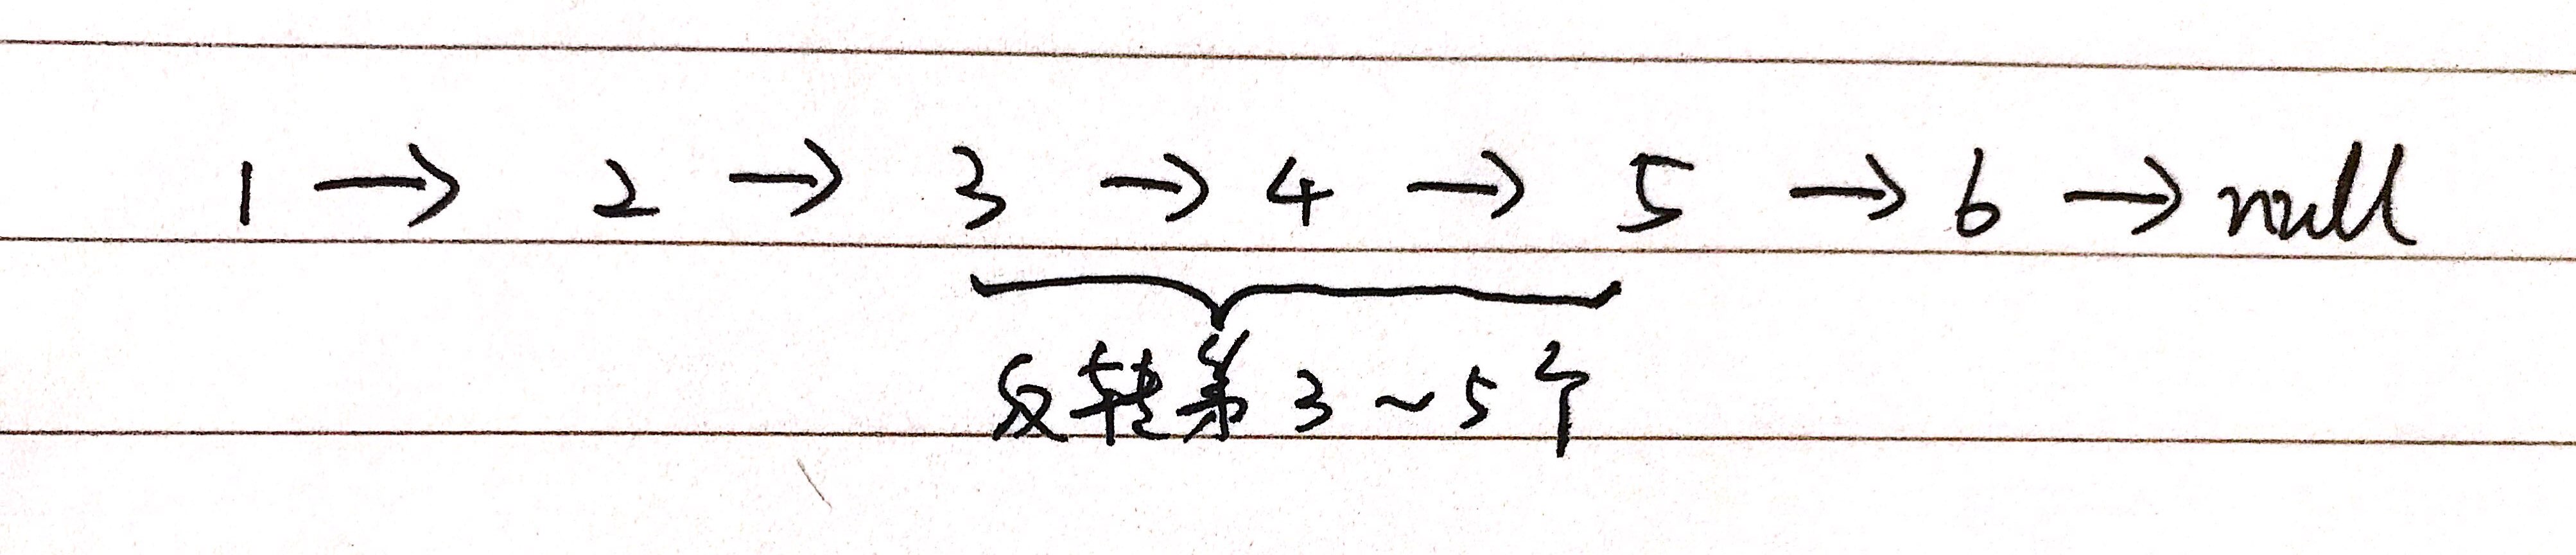 1 → 2 → 3 → 4 → 5 → 6 → null
反转第3~5个